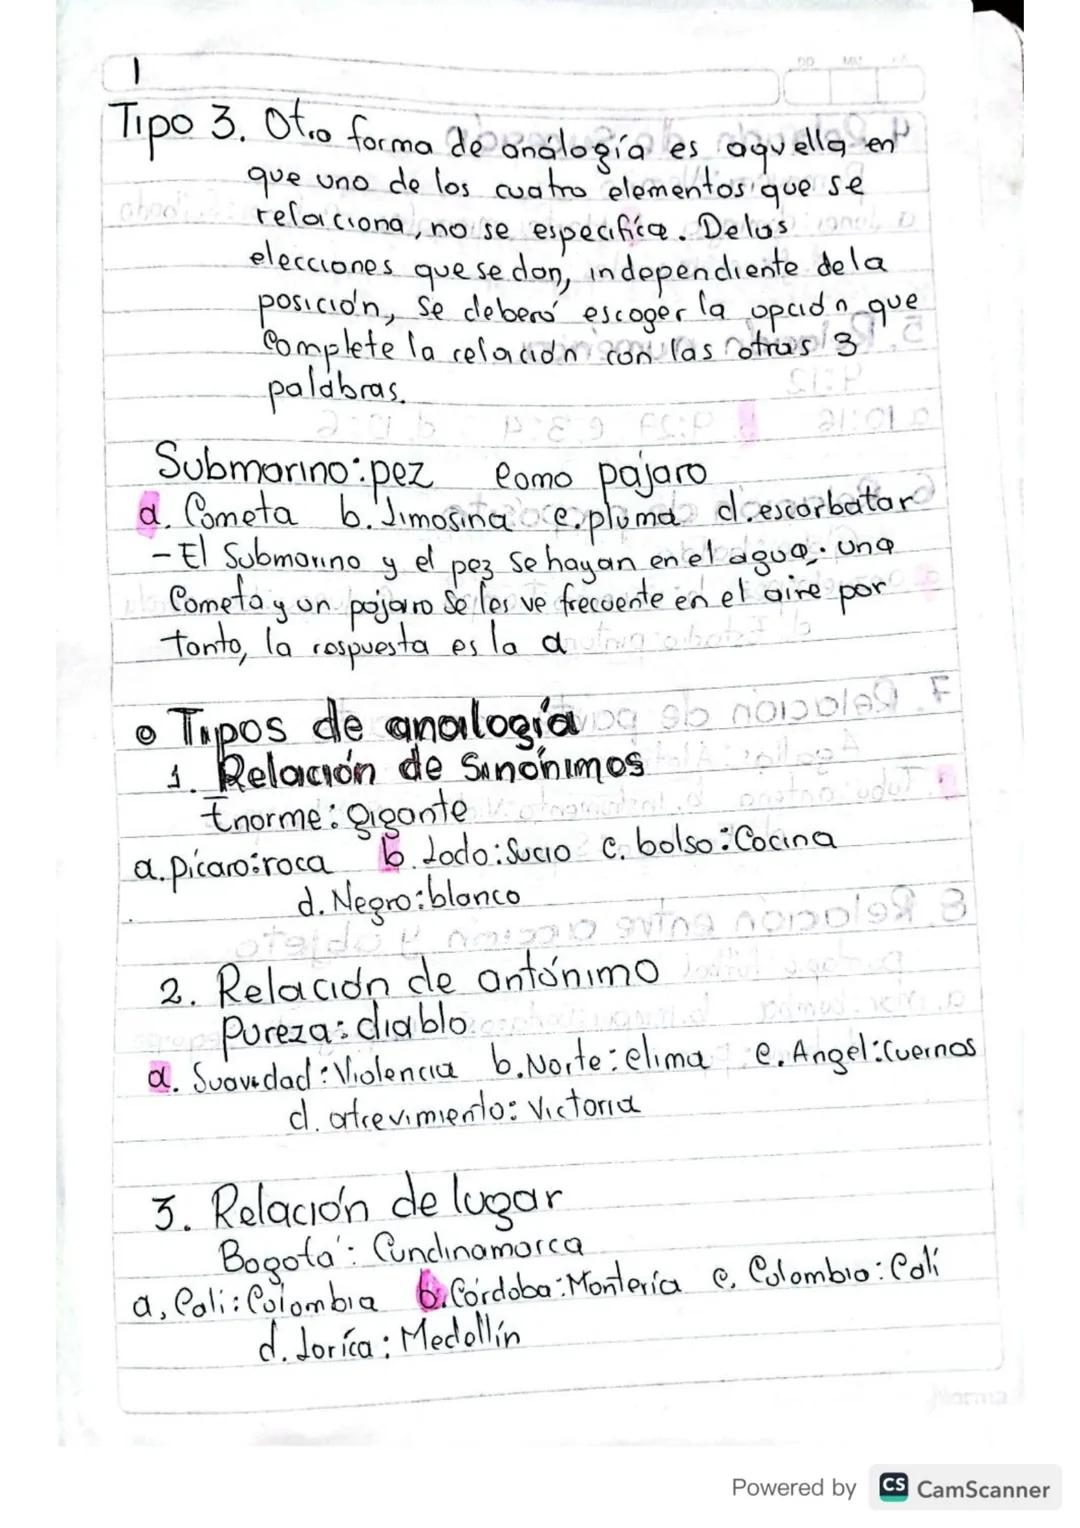 1
Tipo 3. Otra forma de análogía es aquella en
que uno de los cuatro elementos que se
relaciona, no se especifíca. De las
elecciones que se dan, independiente de la
posición, se deberá escoger la opción que
Complete la relación con las otras 3
palabras.
Submarino:pez como pajaro
a. Cometa b. Limosina c. pluma d. escarbatar
- El Submarino y el pez se hayan en el agua. Una
Cometa y un pajaro se les ve frecuente en el aire por
tanto, la respuesta es la a
Tipos de analogía
1. Relación de Sinónimos
Enorme: gigante
a. pícaro:roca b. Lodo:Sucio c. bolso:Cocina
d. Negro:blanco
2. Relación de antónimo
Pureza: diablo
a. Suavidad: Violencia b. Norte: clima c. Angel:Cuernos
d. atrevimiento: Victoria
3. Relación de lugar
Bogotá: Cundinamarca
a. Cali: Colombia b. Córdoba:Montería c. Colombia: Cali
d. Lorica: Medellín
Norma
Powered by CS CamScanner